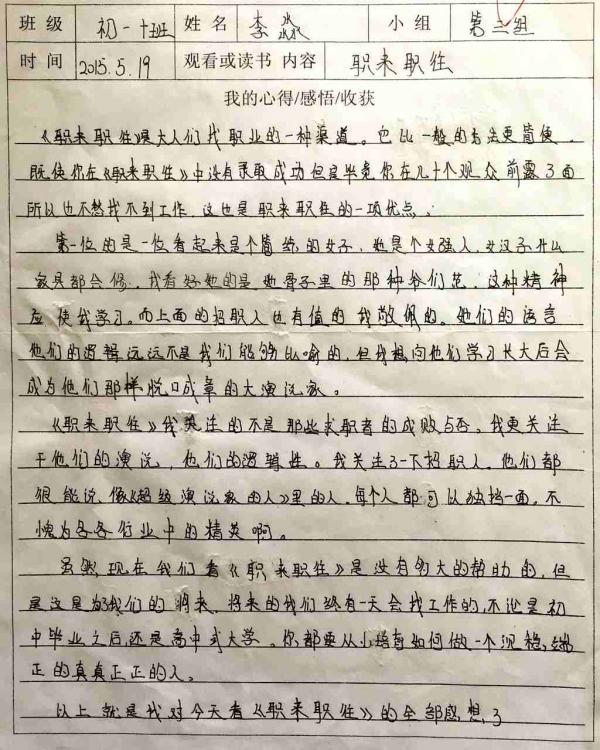 班级 初一十班 姓名 李淼 小组 第三组
时间 2015.5.19 观看或读书 内容 职来职往
我的心得/感悟/收获
《职来职往》是大人们找职业的一种渠道。它比一般的方法更简便,
既使你在《职来职往》中没有录取成功但是毕竟你在几十个观众前露了面
所以也不愁找不到工作,这也是职来职往的一项优点。
第一位的是一位看起来是个简练的女子,她是个女强人,女汉子什么
家具都会修,我看好她的是她骨子里的那种爷们范,这种精神
应使我学习。而上面的招职人也有值的我敬佩的。她们的语言
他们的逻辑远远不是我们能够比喻的,但我想向他们学习长大后会
成为他们那样脱口成章的大演说家。
《职来职往》我关注的不是那些求职者的成败与否,我更关注
于他们的演说,他们的逻辑性。我关注了一下招职人。他们都
很能说,像《超级演说家的人》里的人,每个人都可以独挡一面,不
愧为各各行业中的精英啊。
虽然,现在我们看《职来职往》是没有多大的帮助的,但
是这是为我们的将来,将来的我们终有一天会找工作的,不论是初
中毕业之后,还是高中或大学。你都要从小培育如何做一个沉稳,端
正的真真正正的人。
以上就是我对今天看《职来职往》的全部感想了